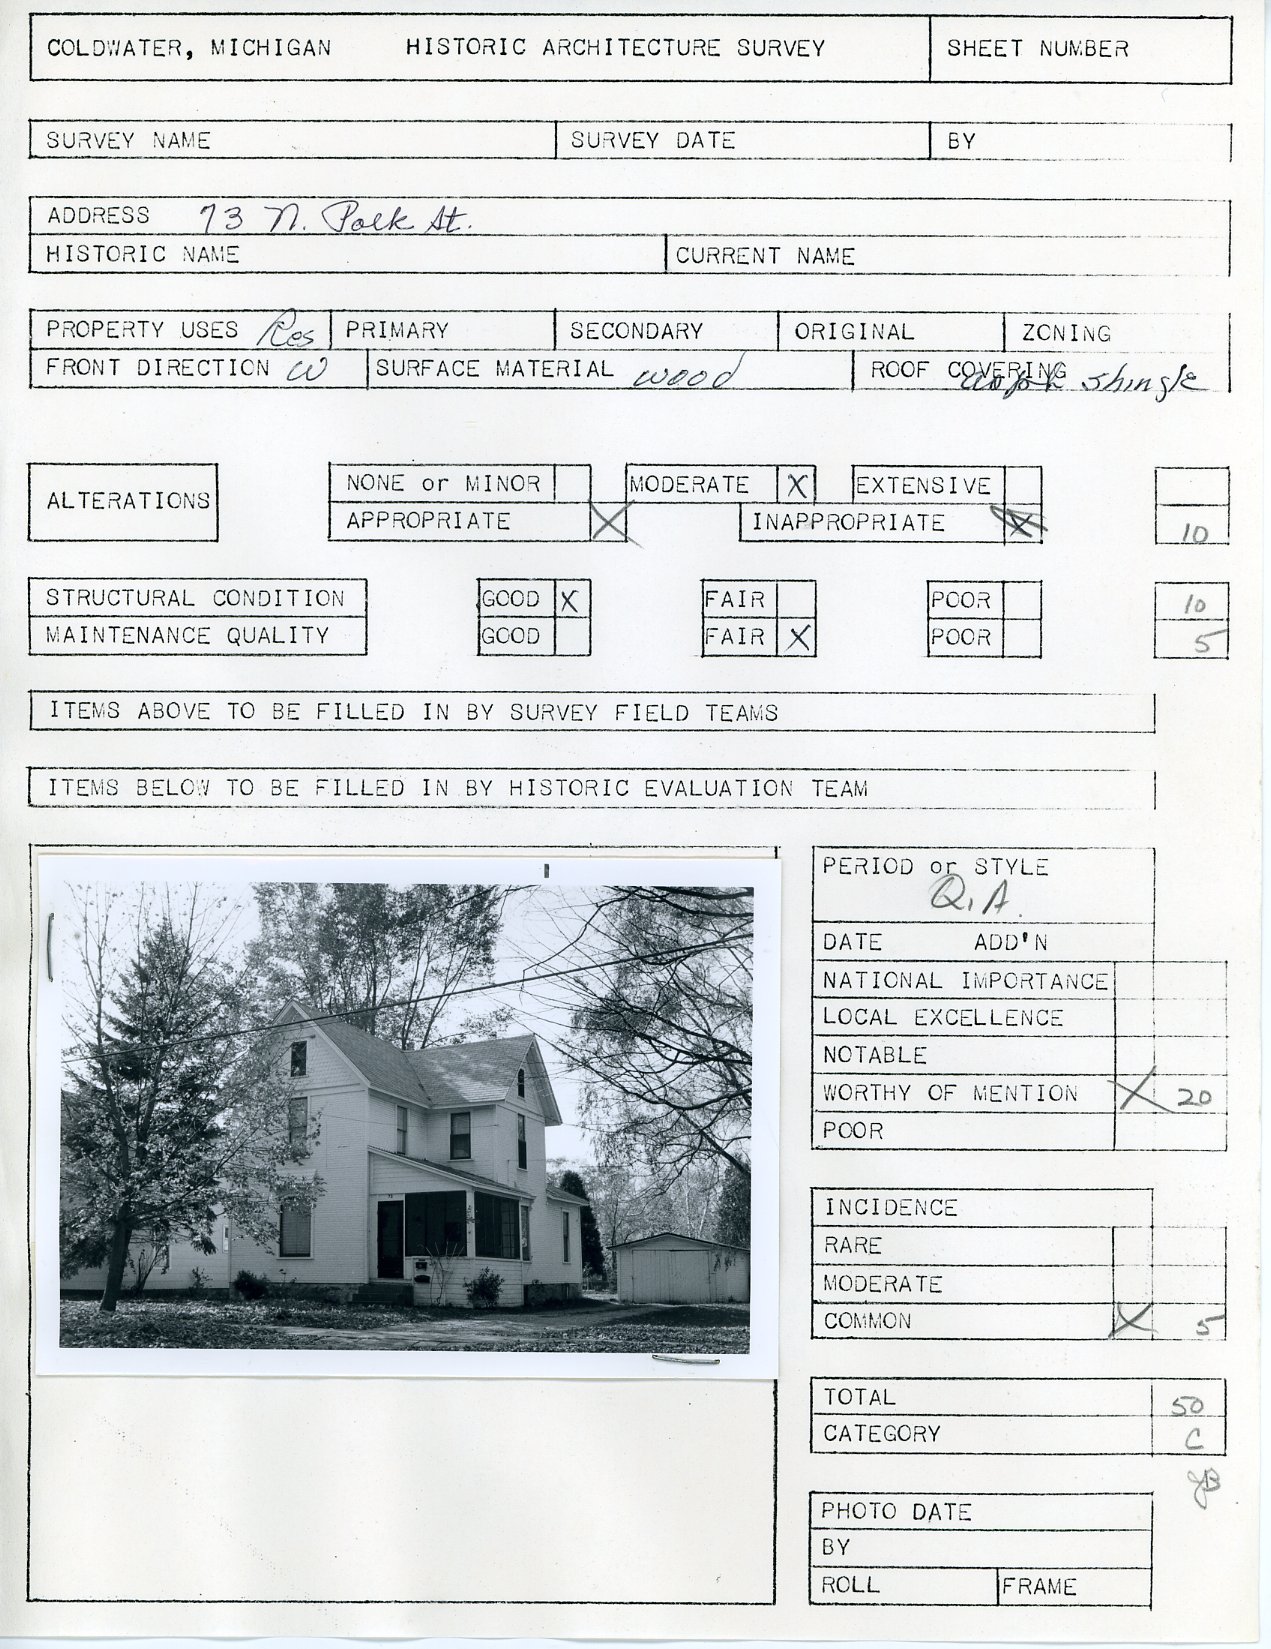 COLDWATER, MICHIGAN HISTORIC ARCHITECTURE SURVEY SHEET NUMBER
SURVEY NAME SURVEY DATE BY
ADDRESS 73 N. Polk St.
HISTORIC NAME CURRENT NAME
PROPERTY USES Res PRIMARY SECONDARY ORIGINAL ZONING
FRONT DIRECTION W SURFACE MATERIAL wood ROOF COVERING asph shingle
ALTERATIONS NONE or MINOR MODERATE X EXTENSIVE
APPROPRIATE X INAPPROPRIATE X 10
STRUCTURAL CONDITION GOOD X FAIR POOR 10
MAINTENANCE QUALITY GOOD FAIR X POOR 5
ITEMS ABOVE TO BE FILLED IN BY SURVEY FIELD TEAMS
ITEMS BELOW TO BE FILLED IN BY HISTORIC EVALUATION TEAM
PERIOD or STYLE
Q.A.
DATE ADD'N
NATIONAL IMPORTANCE
LOCAL EXCELLENCE
NOTABLE
WORTHY OF MENTION X 20
POOR
INCIDENCE
RARE
MODERATE
COMMON X 5
TOTAL 50
CATEGORY C
JB
PHOTO DATE
BY
ROLL FRAME